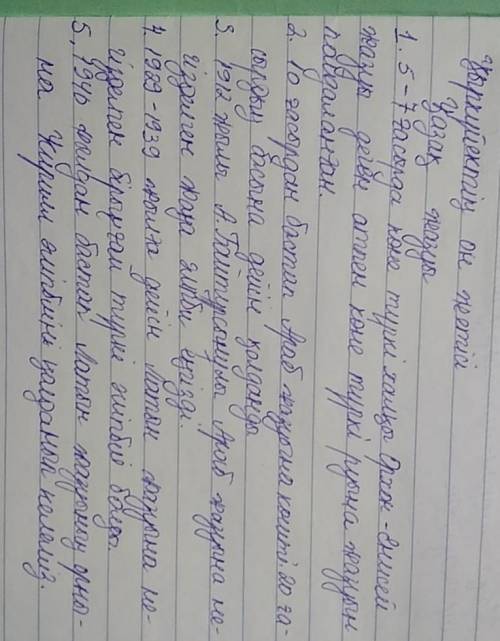 Қыркүйектің он жетісі
Қазақ жазуы
1. 5-7 ғасырда көне түркі жазуы Орхон-Енисей
жазуы деген атпен көне түркі руна жазуын
пайдаланған.
2. 10 ғасырдан бастап Араб жазуына көшті. 20 ға-
сырдың басына дейін қолданды
3. 1912 жылы А. Байтұрсынұлы Араб жазуына не-
гізделген жаңа әліпби енгізді.
4. 1929-1939 жылға дейін Латын жазуына не-
гізделген бірыңғай түркі әліпбиі болды.
5. 1940 жылдан бастап Латын жазуының орны-
на Кирилл әліпбиін қолданып келеміз.